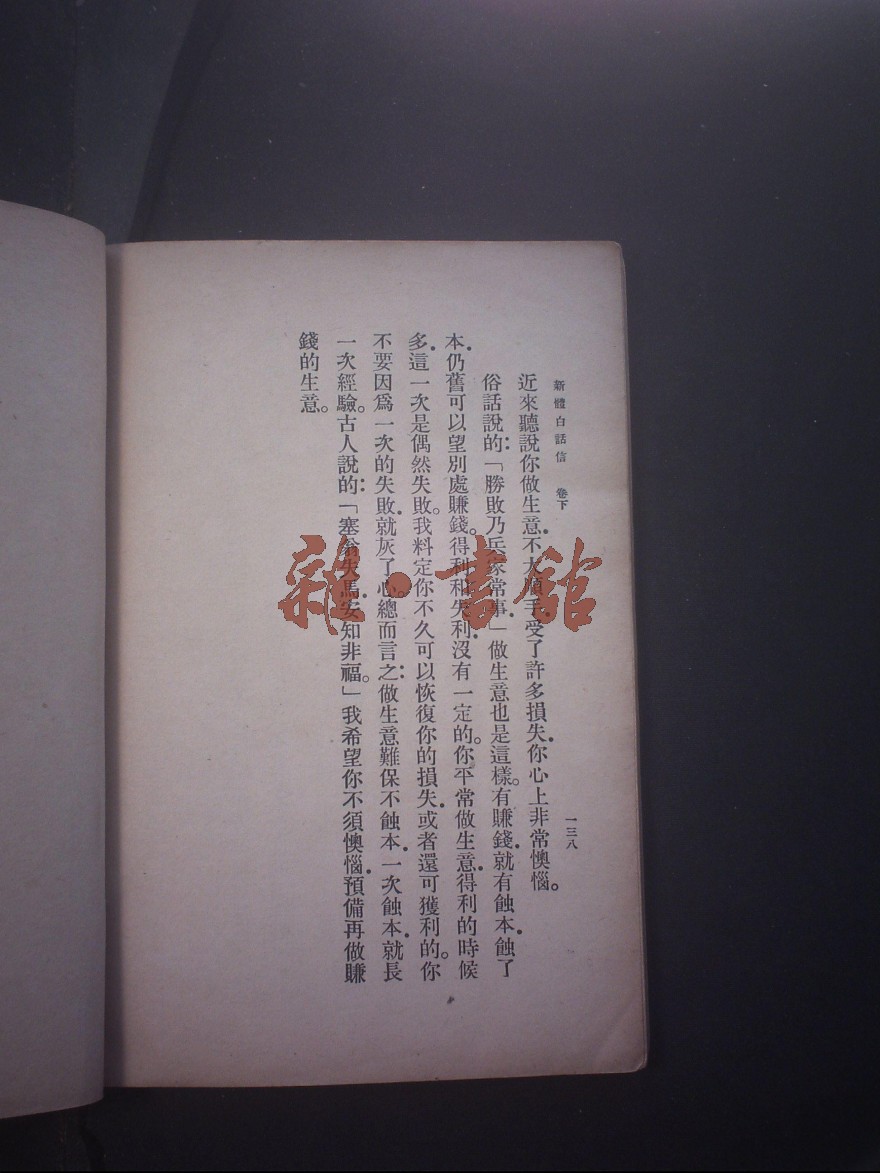 新體白話信 卷下 一三八
近來聽說你做生意．不大順手．受了許多損失．你心上非常懊惱。
俗話說的：「勝敗乃兵家常事．」做生意也是這樣。有賺錢．就有蝕本．蝕了
本．仍舊可以望別處賺錢。得利和失利．沒有一定的。你平常做生意．得利的時候
多．這一次是偶然失敗。我料定你不久可以恢復你的損失．或者還可獲利的。你
不要因爲一次的失敗．就灰了心。總而言之：做生意難保不蝕本．一次蝕本．就長
一次經驗。古人說的：「塞翁失馬．安知非福。」我希望你不須懊惱．預備再做賺
錢的生意。
雜·書館